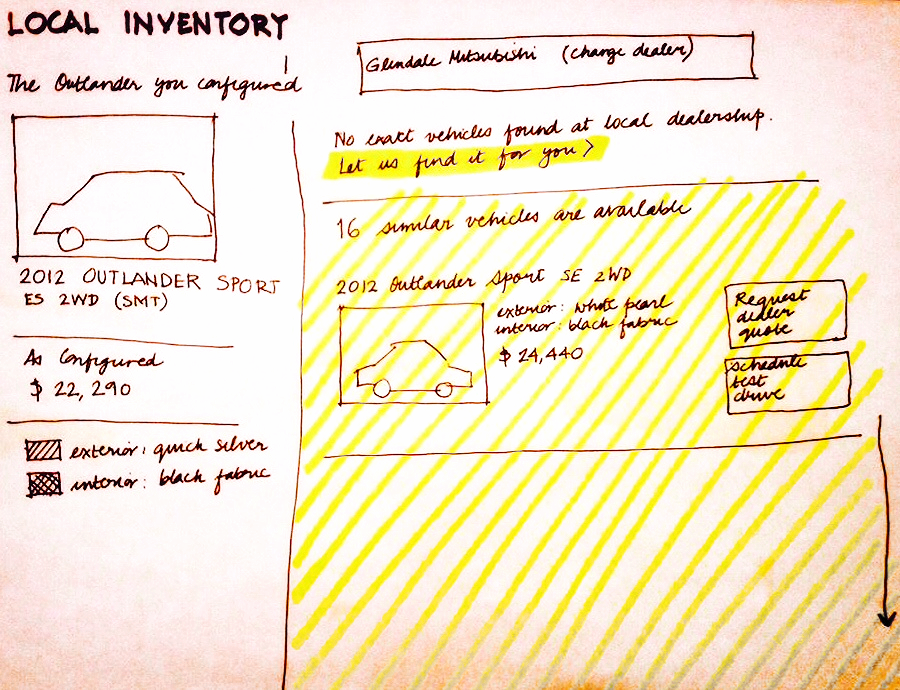 LOCAL INVENTORY
The Outlander you configured
2012 OUTLANDER SPORT
ES 2WD (SMT)
As Configured
$ 22,290
exterior: quick silver
interior: black fabric
Glendale Mitsubishi (change dealer)
No exact vehicles found at local dealership.
Let us find it for you >
16 similar vehicles are available
2012 Outlander Sport SE 2WD
exterior: white pearl
interior: black fabric
$ 24,440
Request
dealer
quote
schedule
test
drive